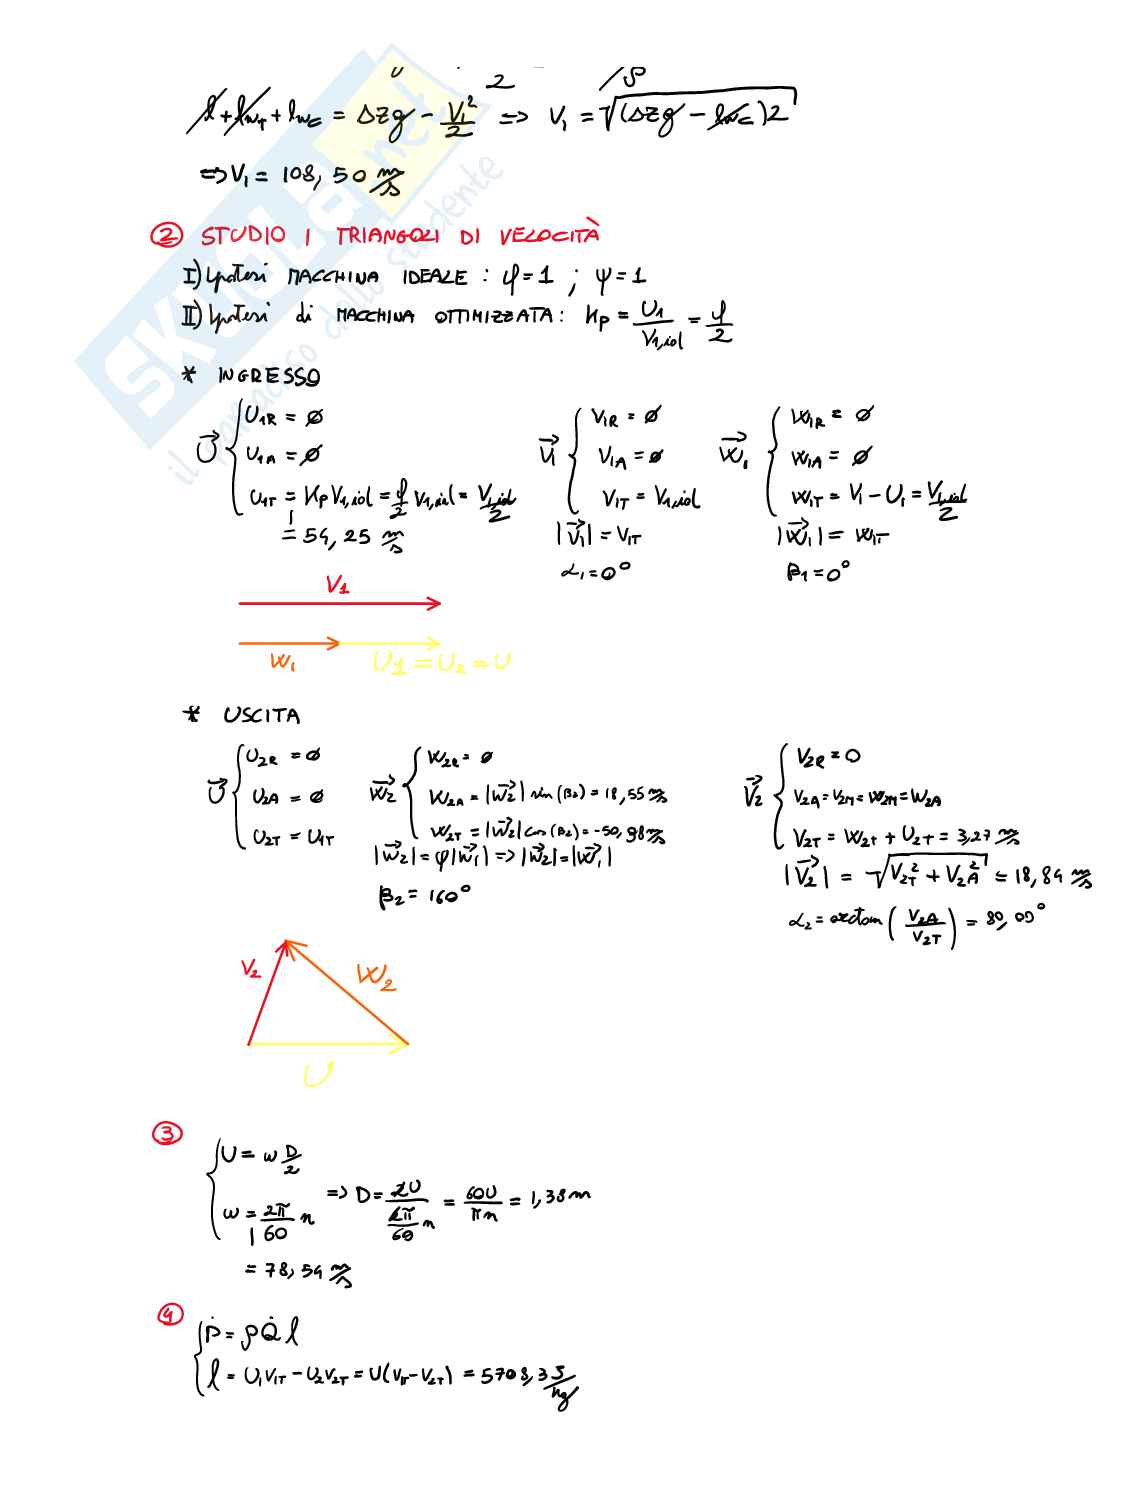 l + l_wT + l_wc = ΔZg - V₁²/2 ⇒ V₁ = √((ΔZg - l_wc)2)
⇒ V₁ = 108,50 m/s
② STUDIO I TRIANGOLI DI VELOCITÀ
I) Ipotesi MACCHINA IDEALE : φ=1 ; ψ=1
II) Ipotesi di MACCHINA OTTIMIZZATA: Kp = U₁/V₁,id = φ/2
* INGRESSO
U⃗ { U₁R = ∅
U₁A = ∅
U₁T = Kp V₁,id = φ/2 V₁,id = V₁,id/2
= 54,25 m/s
V⃗₁ { V₁R = ∅
V₁A = ∅
V₁T = V₁,id
|V⃗₁| = V₁T
α₁ = 0°
W⃗₁ { W₁R = ∅
W₁A = ∅
W₁T = V₁ - U₁ = V₁,id/2
|W⃗₁| = W₁T
β₁ = 0°
V₁
W₁ U₁ = U₂ = U
* USCITA
U⃗ { U₂R = ∅
U₂A = ∅
U₂T = U₁T
W⃗₂ { W₂R = ∅
W₂A = |W⃗₂| sin(β₂) = 18,55 m/s
W₂T = |W⃗₂| cos(β₂) = -50,98 m/s
|W⃗₂| = φ|W⃗₁| => |W⃗₂| = |W⃗₁|
β₂ = 160°
V⃗₂ { V₂R = 0
V₂A = V₂M = W₂M = W₂A
V₂T = W₂T + U₂T = 3,27 m/s
|V⃗₂| = √(V₂T² + V₂A²) = 18,84 m/s
α₂ = arctan(V₂A/V₂T) = 80,00°
V₂ W₂
U
③
{ U = ω D/2
ω = 2π/60 n
=> D = 2U/(2π/60 n) = 60U/πn = 1,38 m
= 78,54 m/s
④
{ Ṗ = ρQ̇ l
l = U₁V₁T - U₂V₂T = U(V₁T - V₂T) = 5708,3 J/kg
SKUOLA.net
il paradiso dello studente